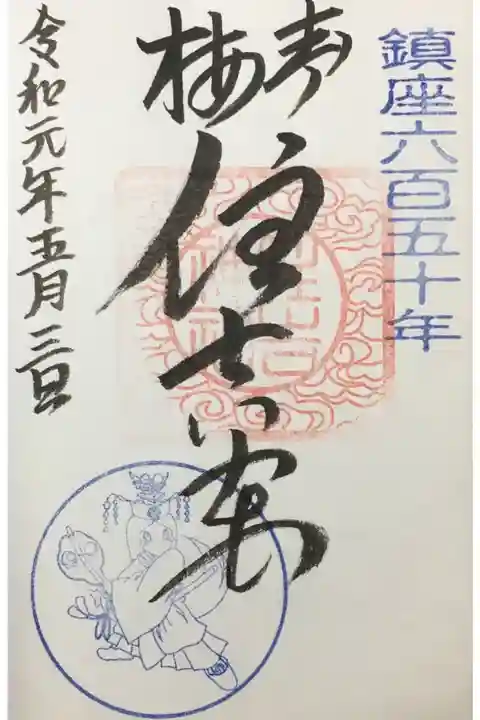 鎮座六百五十年
青梅
住吉宮
住吉
神社
令和元年五月三日